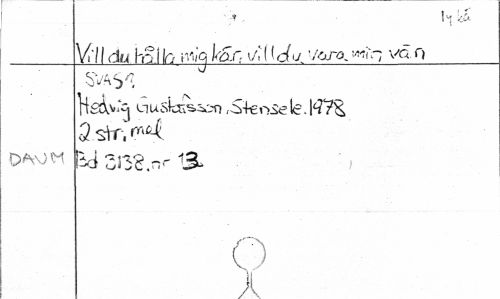 ly kä
Vill du hålla mig kär, vill du vara min vän
SVAS?
Hedvig Gustafsson, Stensele. 1978
2 str, mel
DAUM Bd 3138, nr 13